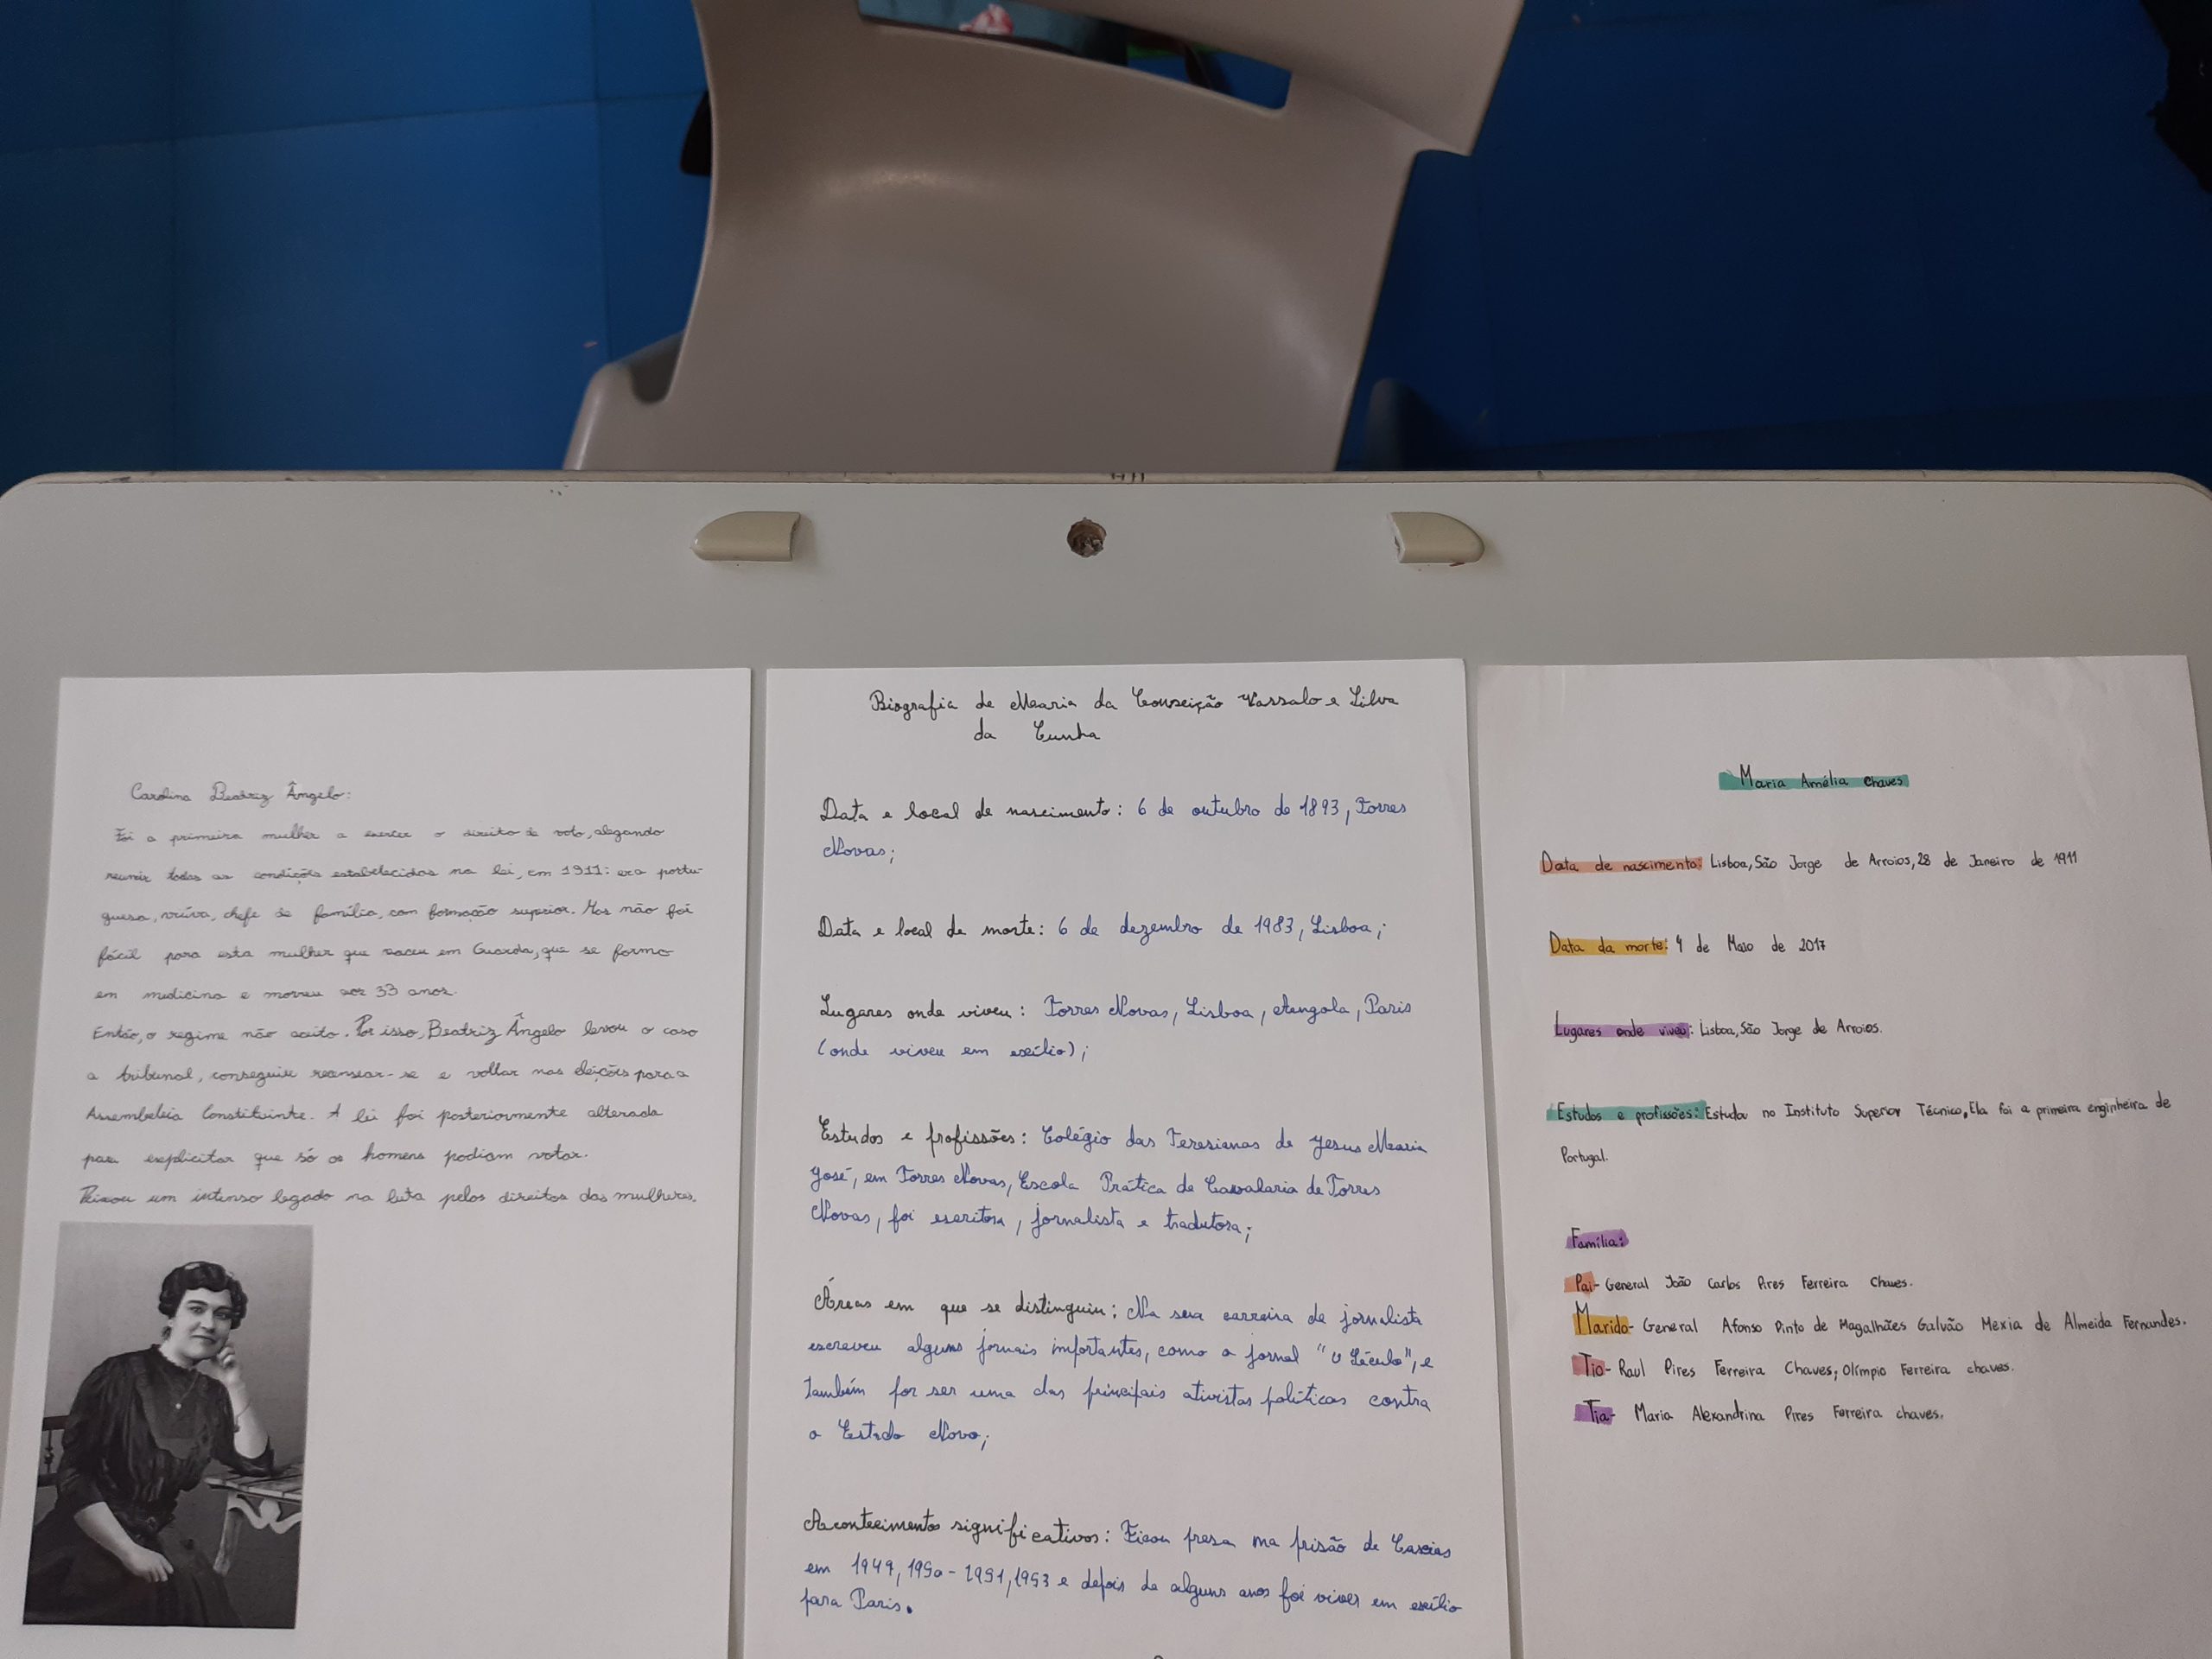 Carolina Beatriz Ângelo:
Foi a primeira mulher a exercer o direito de voto, alegando
reunir todas as condições estabelecidas na lei, em 1911: era portu-
guesa, viúva, chefe de família, com formação superior. Mas não foi
fácil para esta mulher que nasceu em Guarda, que se formo
em medicina e morreu aos 33 anos.
Então, o regime não aceito. Por isso, Beatriz Ângelo levou o caso
a tribunal, conseguiu recensear-se e voltar nas eleições para a
Assembleia Constituinte. A lei foi posteriormente alterada
para explicitar que só os homens podiam votar.
Deixou um intenso legado na luta pelos direitos das mulheres.
Biografia de Maria da Conseição Vassalo e Silva
da Cunha
Data e local de nascimento: 6 de outubro de 1893, Torres
Novas;
Data e local de morte: 6 de dezembro de 1983, Lisboa;
Lugares onde viveu: Torres Novas, Lisboa, Angola, Paris
(onde viveu em exílio);
Estudos e profissões: Colégio das Teresianas de Jesus Maria
José, em Torres Novas, Escola Prática de Cavalaria de Torres
Novas, foi escritora, jornalista e tradutora;
Áreas em que se distinguiu: Na sua carreira de jornalista
escreveu alguns jornais importantes, como o jornal "O Século", e
também por ser uma das principais ativistas políticas contra
o Estado Novo;
Acontecimentos significativos: Ficou presa na prisão de Caxias
em 1949, 1950-1951, 1953 e depois de alguns anos foi viver em exílio
para Paris.
Maria Amélia Chaves
Data de nascimento: Lisboa, São Jorge de Arroios, 28 de Janeiro de 1911
Data da morte: 4 de Maio de 2017
Lugares onde viveu: Lisboa, São Jorge de Arroios.
Estudos e profissões: Estudou no Instituto Superior Técnico, Ela foi a primeira enginheira de
Portugal.
Família:
Pai- General João Carlos Pires Ferreira Chaves.
Marido- General Afonso Pinto de Magalhães Galvão Mexia de Almeida Fernandes.
Tio- Raul Pires Ferreira Chaves; Olímpio Ferreira chaves.
Tia- Maria Alexandrina Pires Ferreira chaves.